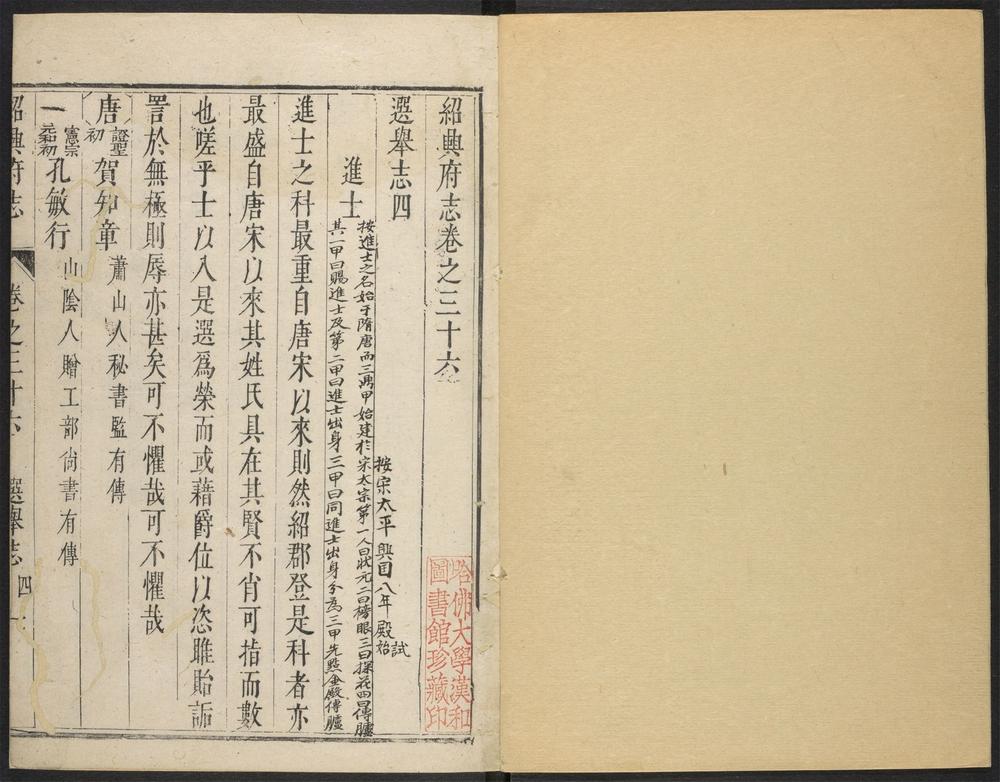 紹興府志卷之三十六
選舉志四
按宋太平興国八年殿試始
進士
按進士之名始于隋唐而三鼎甲始建於宋太宗第一人曰狀元二曰榜眼三曰探花四曰傳臚
其一甲曰賜進士及第二甲曰進士出身三甲曰同進士出身分為三甲先點金殿傳臚
進士之科最重自唐宋以來則然紹郡登是科者亦
最盛自唐宋以來其姓氏具在其賢不肖可指而數
也嗟乎士以入是選爲榮而或藉爵位以恣睢貽詬
詈於無極則辱亦甚矣可不懼哉可不懼哉
唐 證聖初 賀知章 蕭山人秘書監有傳
憲宗元和初 孔敏行 山陰人贈工部尙書有傳
紹興府志 卷之三十六 選舉志四 一
哈佛大學漢和
圖書館珍藏印